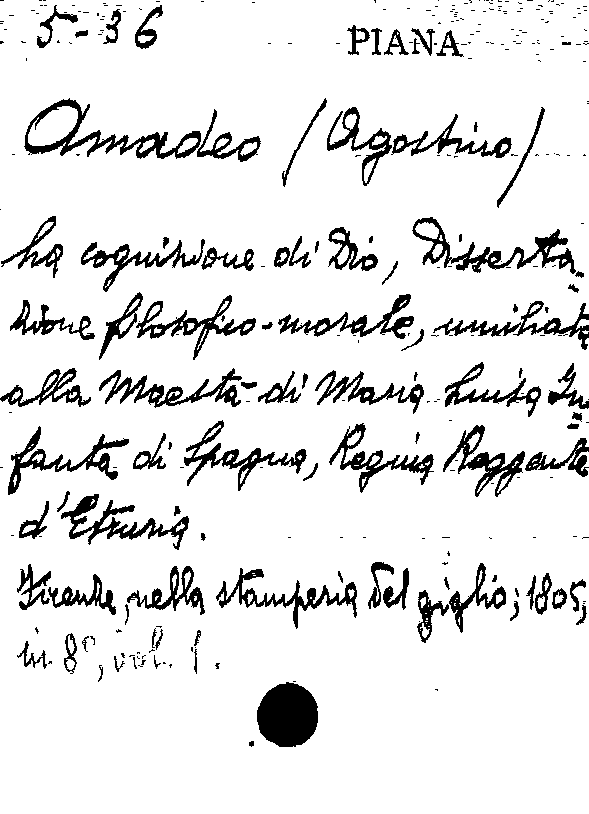 5-36 PIANA
Amadeo (Agostino)
La cognizione di Dio, Disserta=
zione filosofico-morale, umiliata
alla Maestà di Maria Luisa In=
fanta di Spagna, Regina Reggente
d'Etruria.
Firenze, nella stamperia del giglio; 1805,
in 8°, vol. 1.